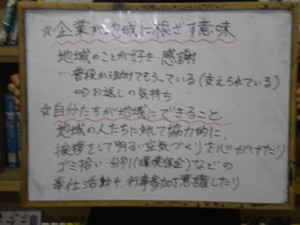 ☆企業が地域に根ざす意味
地域のことが好き・感謝
…普段から助けてもらっている(支えられている)
⇒お返しの気持ち
☆自分たちが地域にできること
地域の人たちに対して協力的に、
挨拶をして明るい空気づくりを心がけたり
ゴミ拾い・分別(環境保全)などの
奉仕活動や、行事参加を意識したり